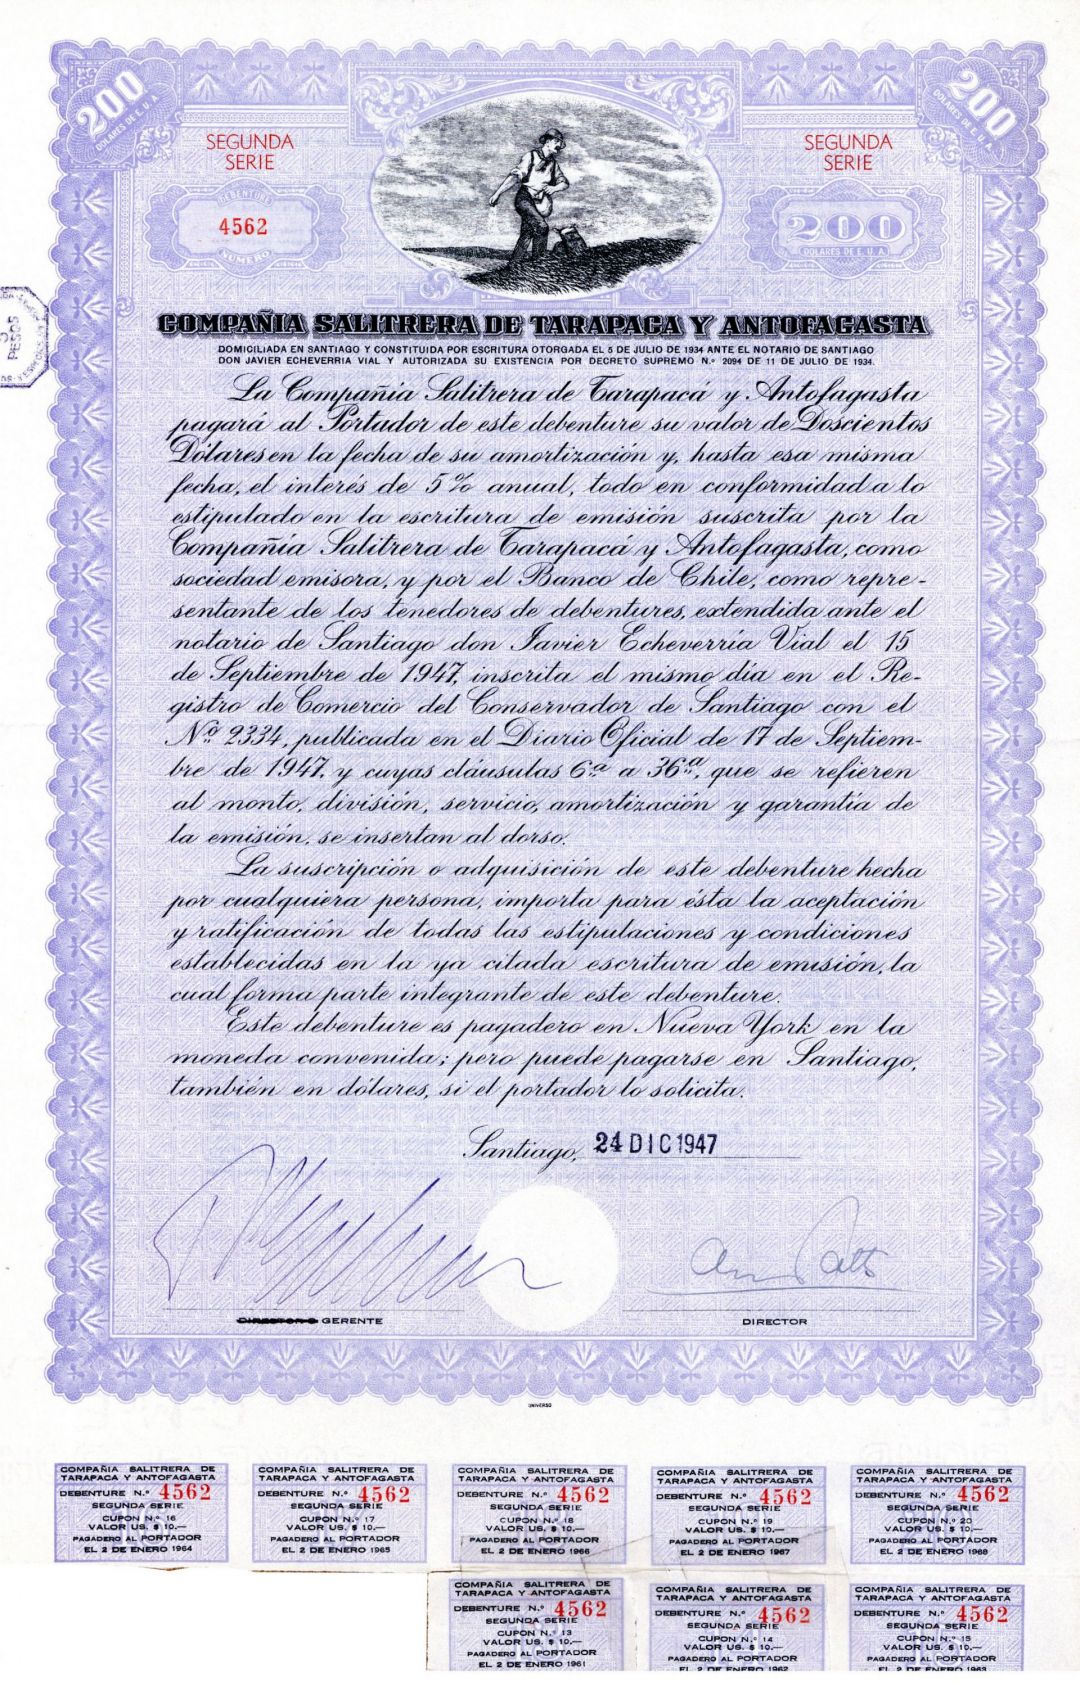 200
DOLARES DE E. U. A.
200
DOLARES DE E. U. A.
SEGUNDA
SERIE
SEGUNDA
SERIE
DEBENTURE
4562
NUMERO
200
DOLARES DE E. U. A.
PESOS
COMPAÑIA SALITRERA DE TARAPACA Y ANTOFAGASTA
DOMICILIADA EN SANTIAGO Y CONSTITUIDA POR ESCRITURA OTORGADA EL 5 DE JULIO DE 1934 ANTE EL NOTARIO DE SANTIAGO
DON JAVIER ECHEVERRIA VIAL Y AUTORIZADA SU EXISTENCIA POR DECRETO SUPREMO N.º 2094 DE 11 DE JULIO DE 1934.
La Compañía Salitrera de Tarapacá y Antofagasta
pagará al Portador de este debenture su valor de Doscientos
Dólares en la fecha de su amortización y, hasta esa misma
fecha, el interés de 5% anual, todo en conformidad a lo
estipulado en la escritura de emisión suscrita por la
Compañía Salitrera de Tarapacá y Antofagasta, como
sociedad emisora, y por el Banco de Chile, como repre-
sentante de los tenedores de debentures, extendida ante el
notario de Santiago don Javier Echeverría Vial el 15
de Septiembre de 1947, inscrita el mismo día en el Re-
gistro de Comercio del Conservador de Santiago con el
Nº 2334, publicada en el Diario Oficial de 17 de Septiem-
bre de 1947, y cuyas cláusulas 6ª a 36ª, que se refieren
al monto, división, servicio, amortización y garantía de
la emisión, se insertan al dorso.
La suscripción o adquisición de este debenture hecha
por cualquiera persona, importa para ésta la aceptación
y ratificación de todas las estipulaciones y condiciones
establecidas en la ya citada escritura de emisión, la
cual forma parte integrante de este debenture.
Este debenture es pagadero en Nueva York en la
moneda convenida; pero puede pagarse en Santiago,
también en dólares, si el portador lo solicita.
Santiago, 24 DIC 1947
GERENTE
DIRECTOR
UNIVERSO
COMPAÑIA SALITRERA DE
TARAPACA Y ANTOFAGASTA
DEBENTURE N.º 4562
SEGUNDA SERIE
CUPON N.º 16
VALOR US. $ 10.—
PAGADERO AL PORTADOR
EL 2 DE ENERO 1964
COMPAÑIA SALITRERA DE
TARAPACA Y ANTOFAGASTA
DEBENTURE N.º 4562
SEGUNDA SERIE
CUPON N.º 17
VALOR US. $ 10.—
PAGADERO AL PORTADOR
EL 2 DE ENERO 1965
COMPAÑIA SALITRERA DE
TARAPACA Y ANTOFAGASTA
DEBENTURE N.º 4562
SEGUNDA SERIE
CUPON N.º 18
VALOR US. $ 10.—
PAGADERO AL PORTADOR
EL 2 DE ENERO 1966
COMPAÑIA SALITRERA DE
TARAPACA Y ANTOFAGASTA
DEBENTURE N.º 4562
SEGUNDA SERIE
CUPON N.º 19
VALOR US. $ 10.—
PAGADERO AL PORTADOR
EL 2 DE ENERO 1967
COMPAÑIA SALITRERA DE
TARAPACA Y ANTOFAGASTA
DEBENTURE N.º 4562
SEGUNDA SERIE
CUPON N.º 20
VALOR US. $ 10.—
PAGADERO AL PORTADOR
EL 2 DE ENERO 1968
COMPAÑIA SALITRERA DE
TARAPACA Y ANTOFAGASTA
DEBENTURE N.º 4562
SEGUNDA SERIE
CUPON N.º 13
VALOR US. $ 10.—
PAGADERO AL PORTADOR
EL 2 DE ENERO 1961
COMPAÑIA SALITRERA DE
TARAPACA Y ANTOFAGASTA
DEBENTURE N.º 4562
SEGUNDA SERIE
CUPON N.º 14
VALOR US. $ 10.—
PAGADERO AL PORTADOR
EL 2 DE ENERO 1962
COMPAÑIA SALITRERA DE
TARAPACA Y ANTOFAGASTA
DEBENTURE N.º 4562
SEGUNDA SERIE
CUPON N.º 15
VALOR US. $ 10.—
PAGADERO AL PORTADOR
EL 2 DE ENERO 1963